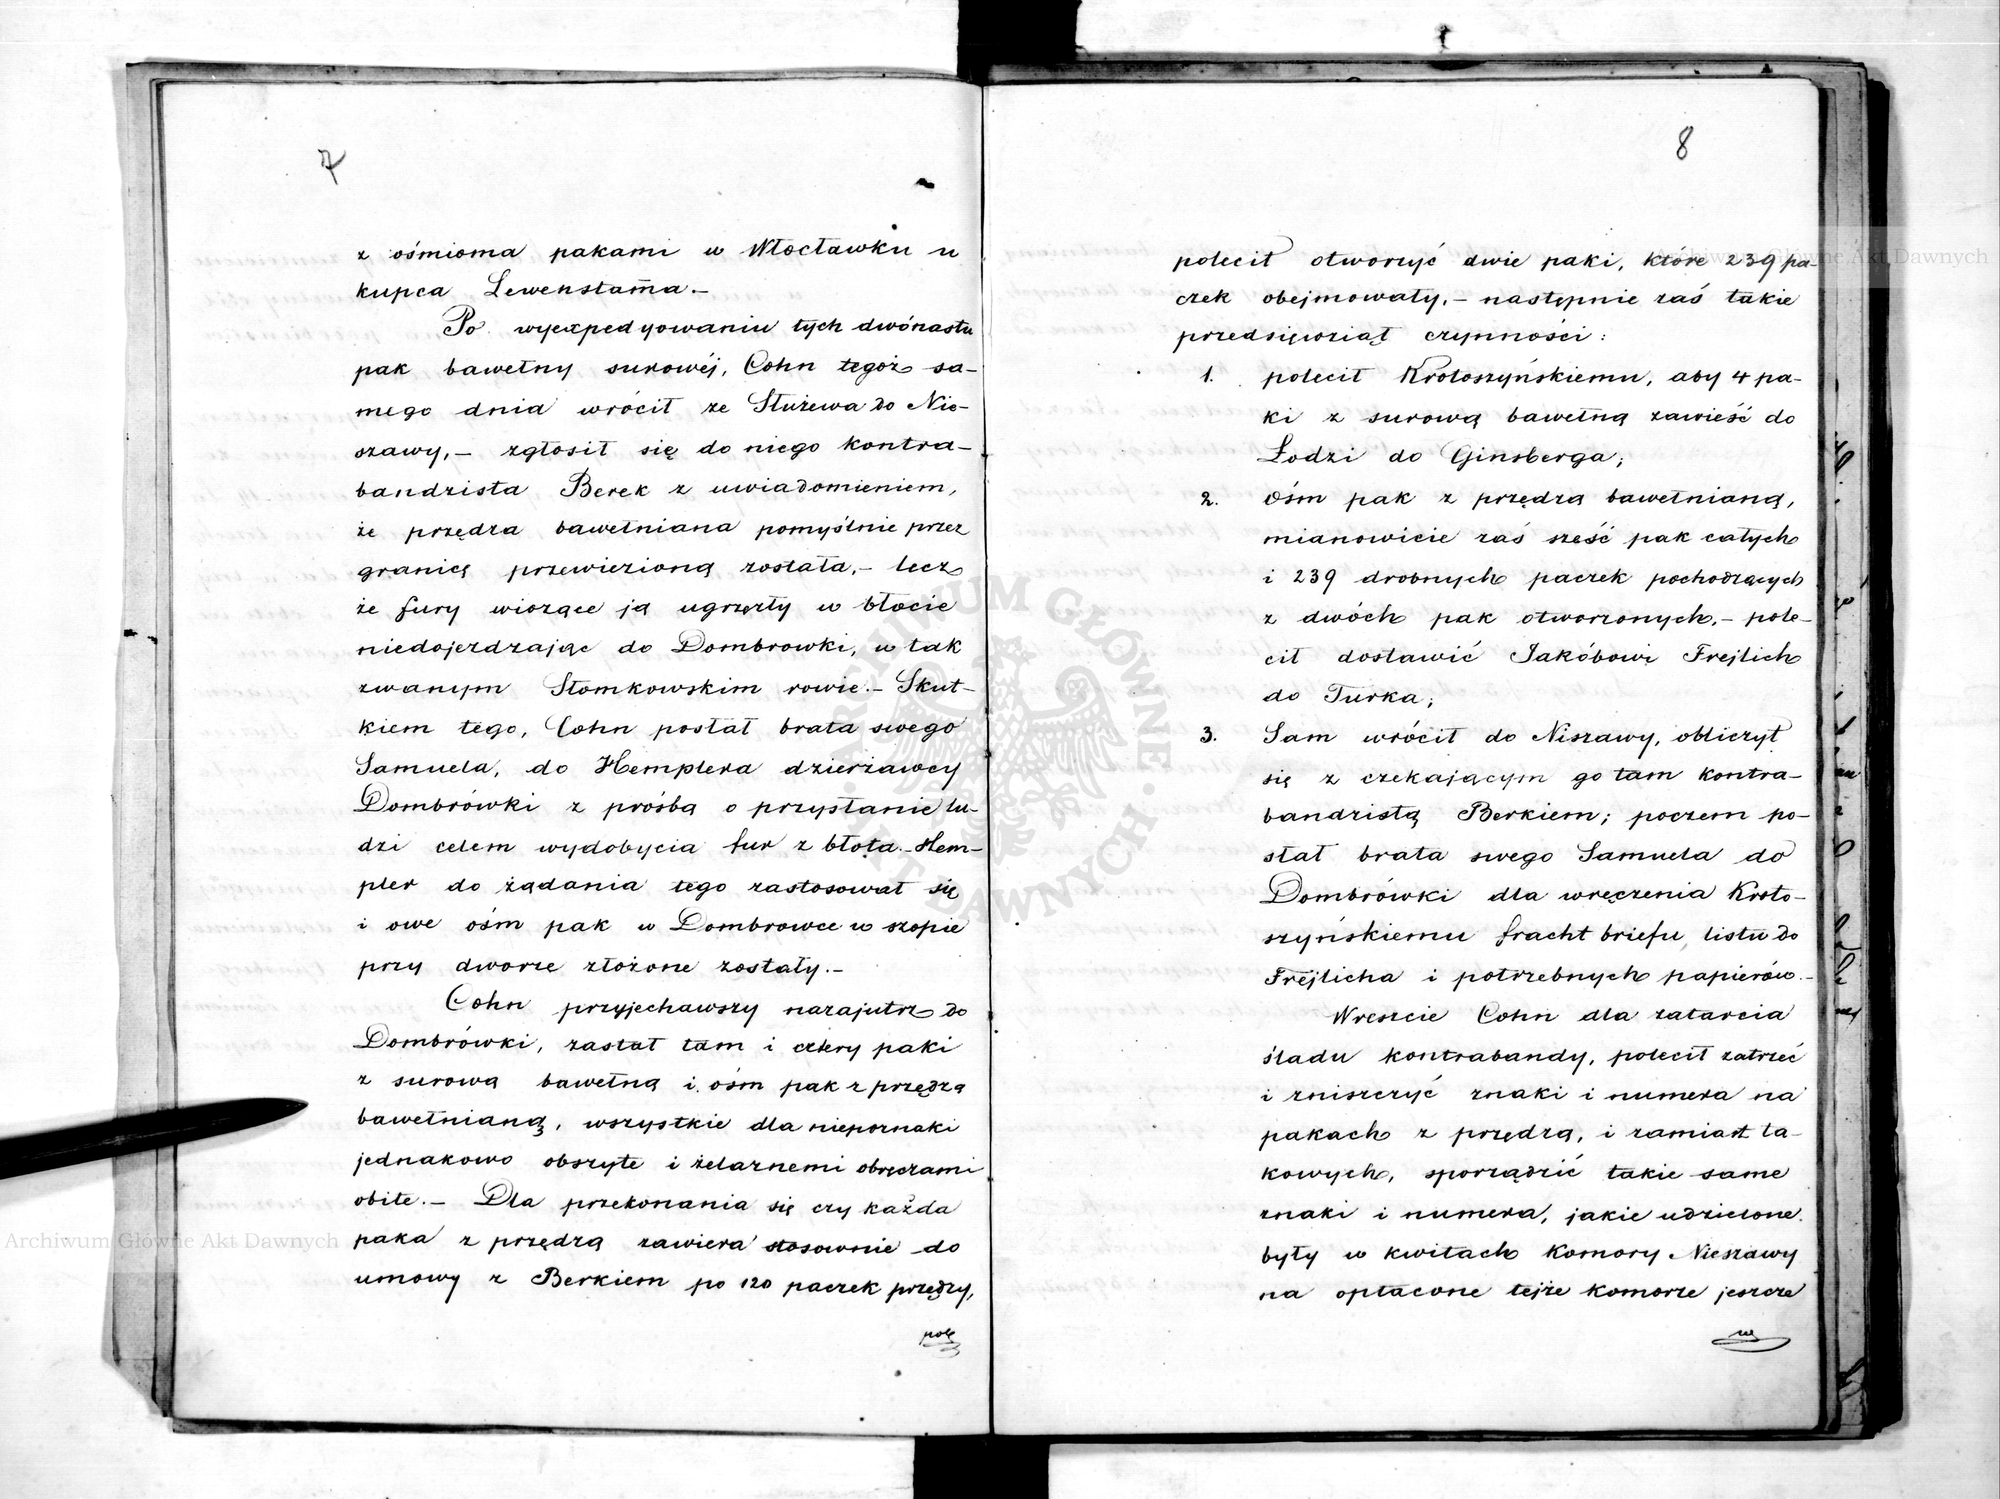 7
z ośmioma pakami w Włocławku u
kupca Lewenstam̄a.–
Po wyexpedyowaniu tych dwónastu
pak bawełny surowéj, Cohn tegoż sa-
mego dnia wrócił ze Służewa do Nie-
szawy,– zgłosił się do niego kontra-
bandzista Berek z uwiadomieniem,
że przędza bawełniana pomyślnie przez
granicę przewiezioną została,– lecz
że fury wiozące ją ugrzęzły w błocie
niedojeżdżając do Dombrowki, w tak
zwanym Słomkowskim rowie.– Skut-
kiem tego, Cohn posłał brata swego
Samuela, do Hemplera dzierżawcy
Dombrówki z prośbą o przysłanie lu-
dzi celem wydobycia fur z błota.– Hem-
pler do żądania tego zastosował się
i owe ośm pak w Dombrowce w szopie
przy dworze złożone zostały.–
Cohn przyjechawszy nazajutrz do
Dombrówki, zastał tam i cztery paki
z surową bawełną i ośm pak z przędzą
bawełnianą, wszystkie dla niepoznaki
jednakowo obszyte i żelaznemi obręczami
obite.– Dla przekonania się czy każda
paka z przędzą zawiera stosownie do
umowy z Berkiem po 120 paczek przędzy,
pole
8
polecił otworzyć dwie paki, które 239 pa-
czek obejmowały,– następnie zaś takie
przedsięwziął czynności:
1. polecił Krotoszyńskiemu, aby 4 pa-
ki z surową bawełną zawieść do
Łodzi do Ginsberga;
2. Ośm pak z przędzą bawełnianą,
mianowicie zaś sześć pak całych
i 239 drobnych paczek pochodzących
z dwóch pak otworzonych,– pole-
cił dostawić Jakóbowi Frejlich
do Turka;
3. Sam wrócił do Niszawy, obliczył
się z czekającym go tam kontra-
bandzistą Berkiem; poczem po-
słał brata swego Samuela do
Dombrówki dla wręczenia Kroto-
szyńskiemu frachtbriefu, listu do
Frejlicha i potrzebnych papierów.–
Wreszcie Cohn dla zatarcia
śladu kontrabandy, polecił zatrzeć
i zniszczyć znaki i numera na
pakach z przędzą, i zamiast ta-
kowych, sporządzić takie same
znaki i numera, jakie udzielone
były w kwitach Komory Nieszawy
na opłacone tejże komorze jeszcze
w
Archiwum Główne Akt Dawnych
Archiwum Główne Akt Dawnych
ARCHIWUM GŁÓWNE AKT DAWNYCH